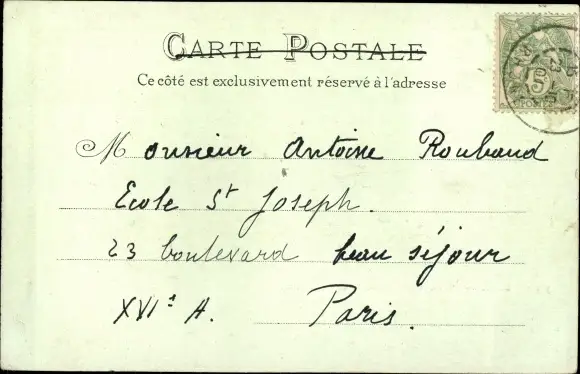 CARTE POSTALE
Ce côté est exclusivement réservé à l'adresse
Monsieur Antoine Roubaud
Ecole St Joseph.
23 boulevard beau séjour
XVIe A. Paris.
5
POSTES